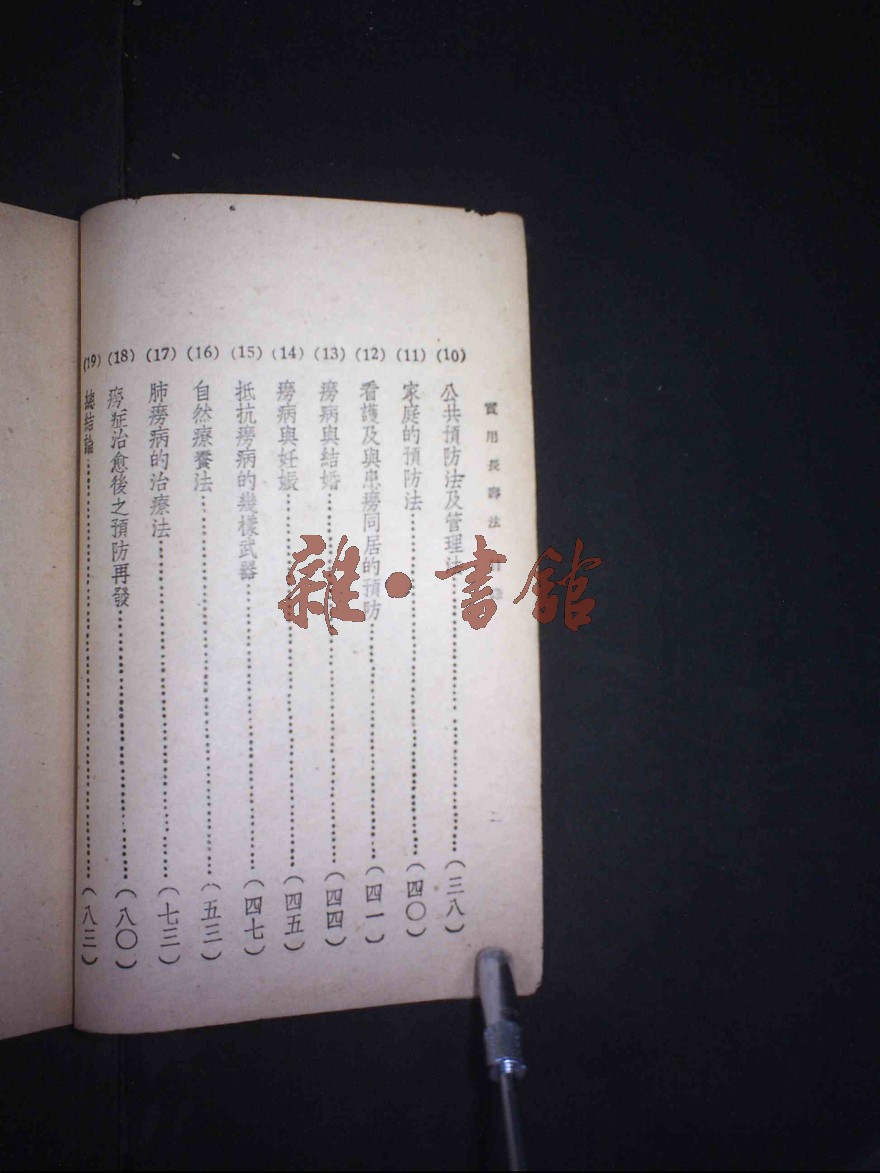 實用長壽法
二
(10) 公共預防法及管理法……………………(三八)
(11) 家庭的預防法……………………(四〇)
(12) 看護及與患癆同居的預防……………………(四一)
(13) 癆病與結婚……………………(四四)
(14) 癆病與妊娠……………………(四五)
(15) 抵抗癆病的幾樣武器……………………(四七)
(16) 自然療養法……………………(五三)
(17) 肺癆病的治療法……………………(七三)
(18) 癆症治愈後之預防再發……………………(八〇)
(19) 總結論……………………(八三)
雜·書館